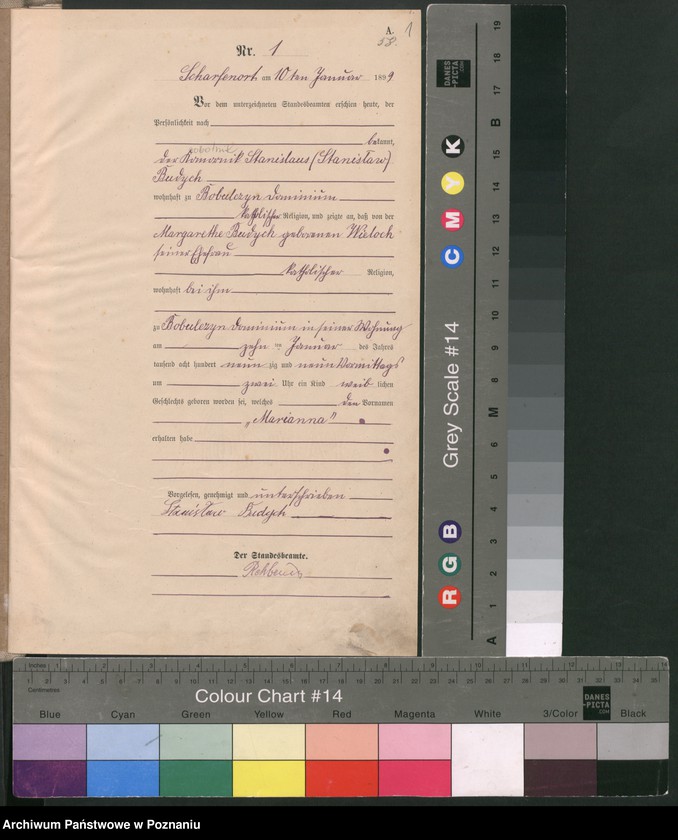 A. 1
58.
Nr. 1
Scharfenort am 10ten Januar 1899
Vor dem unterzeichneten Standesbeamten erschien heute, der
Persönlichkeit nach
bekannt,
robotnik
der Komornik Stanislaus (Stanisław)
Budych
wohnhaft zu Bobulczyn Dominium
katholischer Religion, und zeigte an, daß von der
Margarethe Budych geborenen Wieloch
seiner Ehefrau
katholischer Religion,
wohnhaft bei ihm
zu Bobulczyn Dominium in seiner Wohnung
am zehn ten Januar des Jahres
tausend acht hundert neun zig und neun Vormittags
um zwei Uhr ein Kind weib lichen
Geschlechts geboren worden sei, welches den Vornamen
„Marianna"
erhalten habe
Vorgelesen, genehmigt und unterschrieben
Stanisław Budych
Der Standesbeamte.
DANES
-PICTA
.COM
Grey Scale #14
C M Y K
R G B
A 1 2 3 4 5 6 M 8 9 10 11 12 13 14 15 B 17 18 19
Inches 1 2 3 4 5 6 7 8 9 10 11 12 13 14
Centimetres 1 2 3 4 5 6 7 8 9 10 11 12 13 14 15 16 17 18 19 20 21 22 23 24 25 26 27 28 29 30 31 32 33 34 35
Colour Chart #14
DANES
-PICTA
.COM
Blue Cyan Green Yellow Red Magenta White 3/Color Black
Archiwum Państwowe w Poznaniu